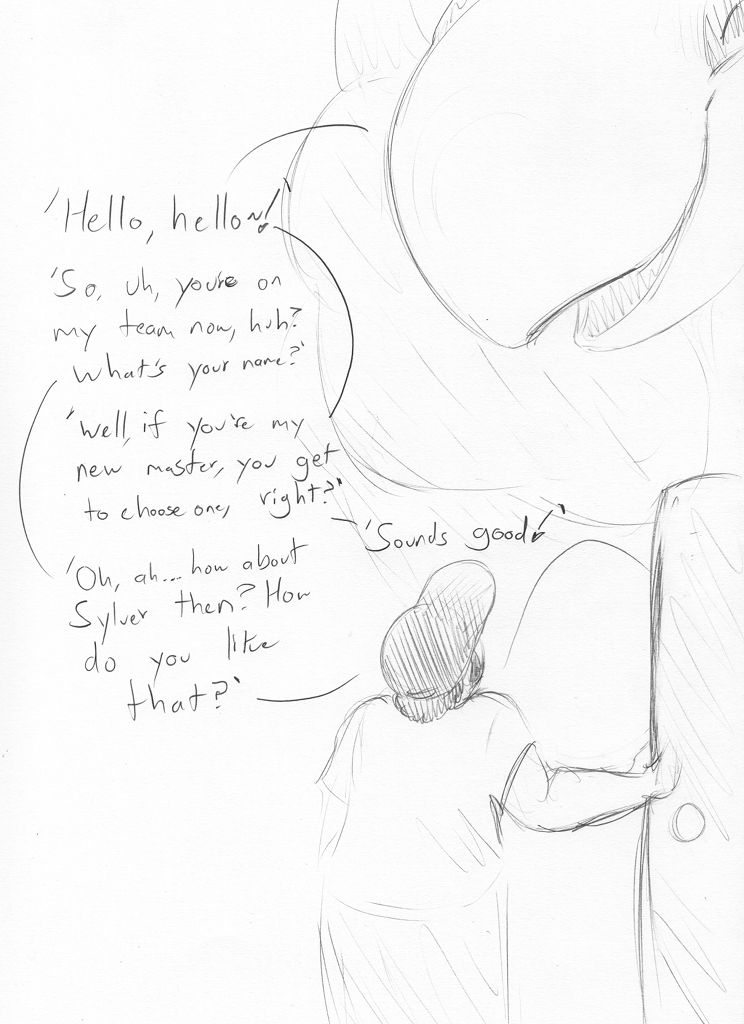 'Hello, hello~!'
'So, uh, you're on
my team now, huh?
What's your name?'
'Well, if you're my
new master, you get
to choose one, right?'
'Sounds good!'
'Oh, ah... how about
Sylver then? How
do you like
that?'